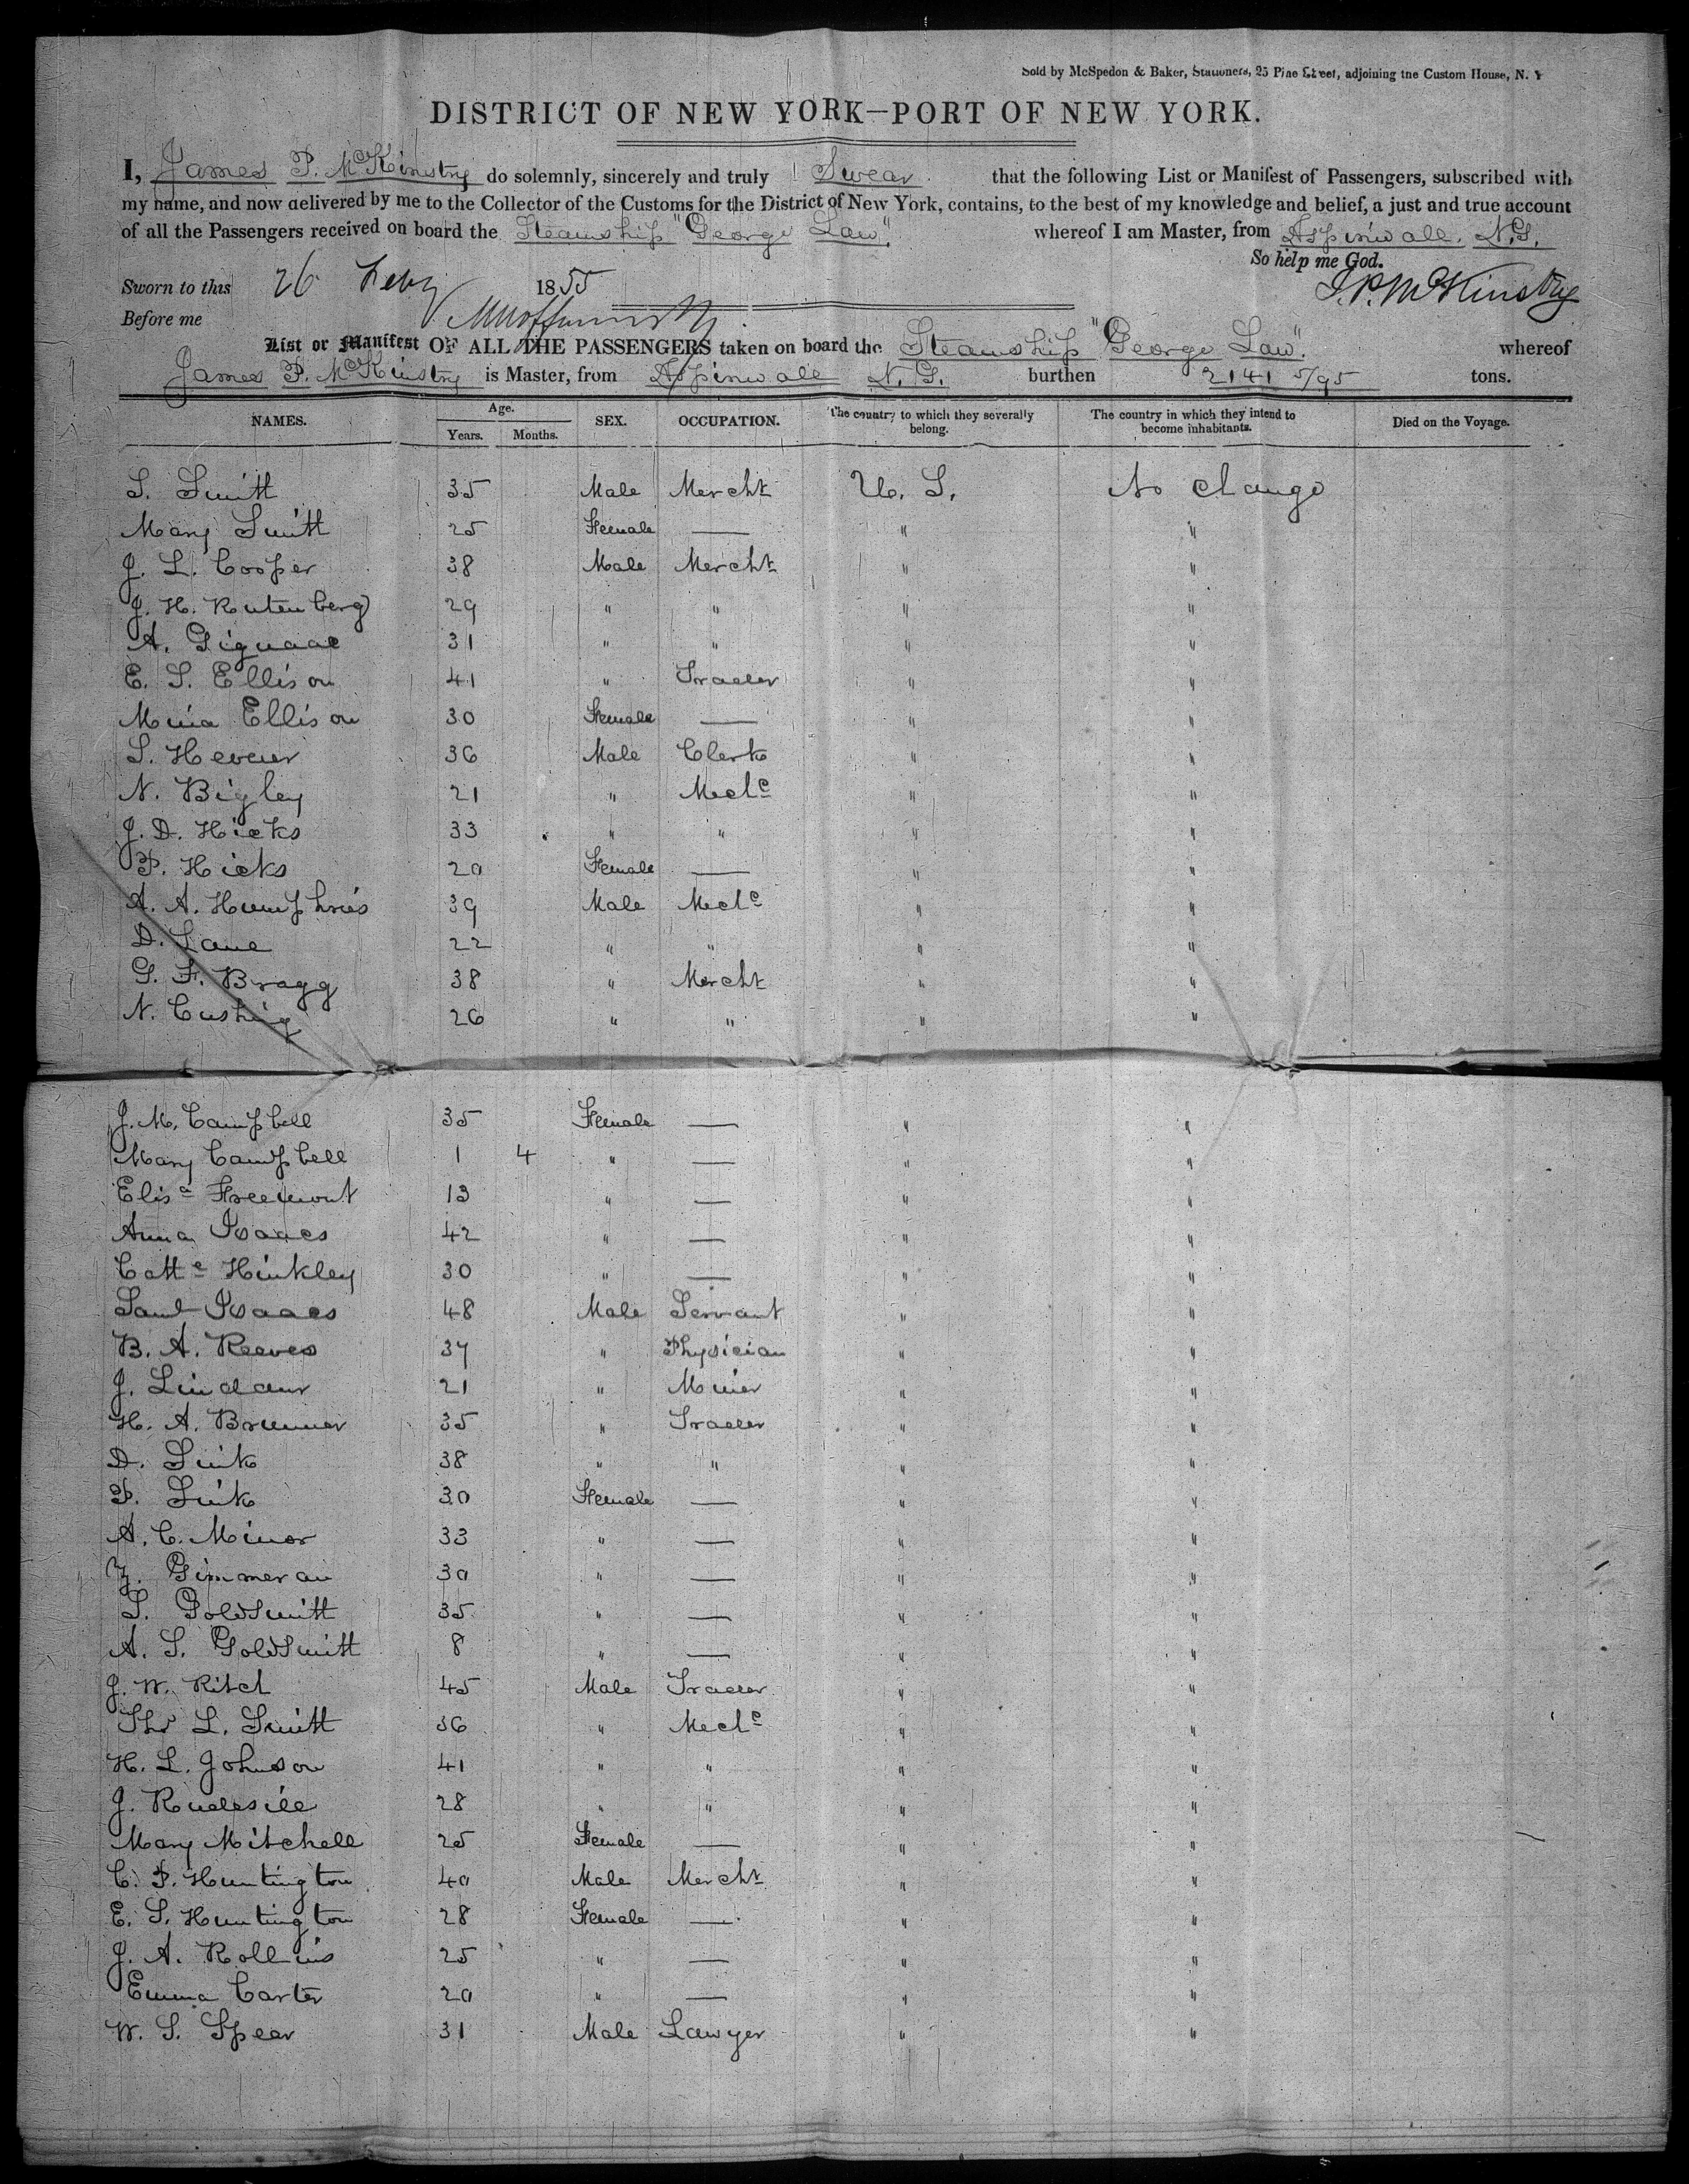 Sold by McSpedon & Baker, Stationers, 25 Pine Street, adjoining the Custom House, N. Y
DISTRICT OF NEW YORK—PORT OF NEW YORK.
I, James P. McKinstry do solemnly, sincerely and truly Swear that the following List or Manifest of Passengers, subscribed with
my name, and now delivered by me to the Collector of the Customs for the District of New York, contains, to the best of my knowledge and belief, a just and true account
of all the Passengers received on board the Steamship "George Law" whereof I am Master, from Aspinwall, N.G.
So help me God.
Sworn to this 26 Feby 1855 J.P. McKinstry
Before me
List or Manifest OF ALL THE PASSENGERS taken on board the Steamship "George Law" whereof
James P. McKinstry is Master, from Aspinwall N. G. burthen 2141 5/95 tons.
NAMES. Age. Years. Months. SEX. OCCUPATION. The country to which they severally belong. The country in which they intend to become inhabitants. Died on the Voyage.
S. Smith 35 Male Mercht U. S. No change
Mary Smith 25 Female — " "
J. L. Cooper 38 Male Mercht " "
J. H. Rutenberg 29 " " " "
A. 31 " " " "
E. S. Ellison 41 " Trader " "
Mina Ellison 30 Female — " "
S. 36 Male Clerk " "
N. Bigley 21 " Mechc " "
J. D. Hicks 33 " " " "
P. Hicks 20 Female — " "
A. A. Humphries 39 Male Mechc " "
D. Lane 22 " " " "
G. F. Bragg 38 " Mercht " "
N. Cushing 26 " " " "
J. M. Campbell 35 Female — " "
Mary Campbell 1 4 " — " "
Elisa Freemont 13 " — " "
Anna Isaacs 42 " — " "
Cathe Hinkley 30 " — " "
Saml Isaacs 48 Male Servant " "
B. A. Reeves 37 " Physician " "
J. Lindaur 21 " Miner " "
H. A. Brunner 35 " Trader " "
D. Link 38 " " " "
P. Link 30 Female — " "
A. C. Minor 33 " — " "
Z. Gimmeran 30 " — " "
S. Goldsmith 35 " — " "
A. S. Goldsmith 8 " — " "
J. W. Ritch 45 Male Trader " "
Thos L. Smith 36 " Mechc " "
H. L. Johnson 41 " " " "
J. Rudesill 28 " " " "
Mary Mitchell 25 Female — " "
C. P. Huntington 40 Male Mercht " "
E. S. Huntington 28 Female — " "
J. A. Rollins 25 " — " "
Emma Carter 20 " — " "
W. S. Spear 31 Male Lawyer " "